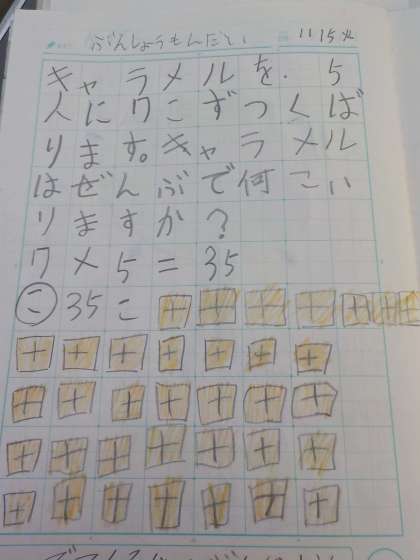 ぶんしょうもんだい 11/15火
キャラメルを、5
人に7こずつくば
ります。キャラメル
はぜんぶで何こい
りますか？
7×5=35
こ 35こ